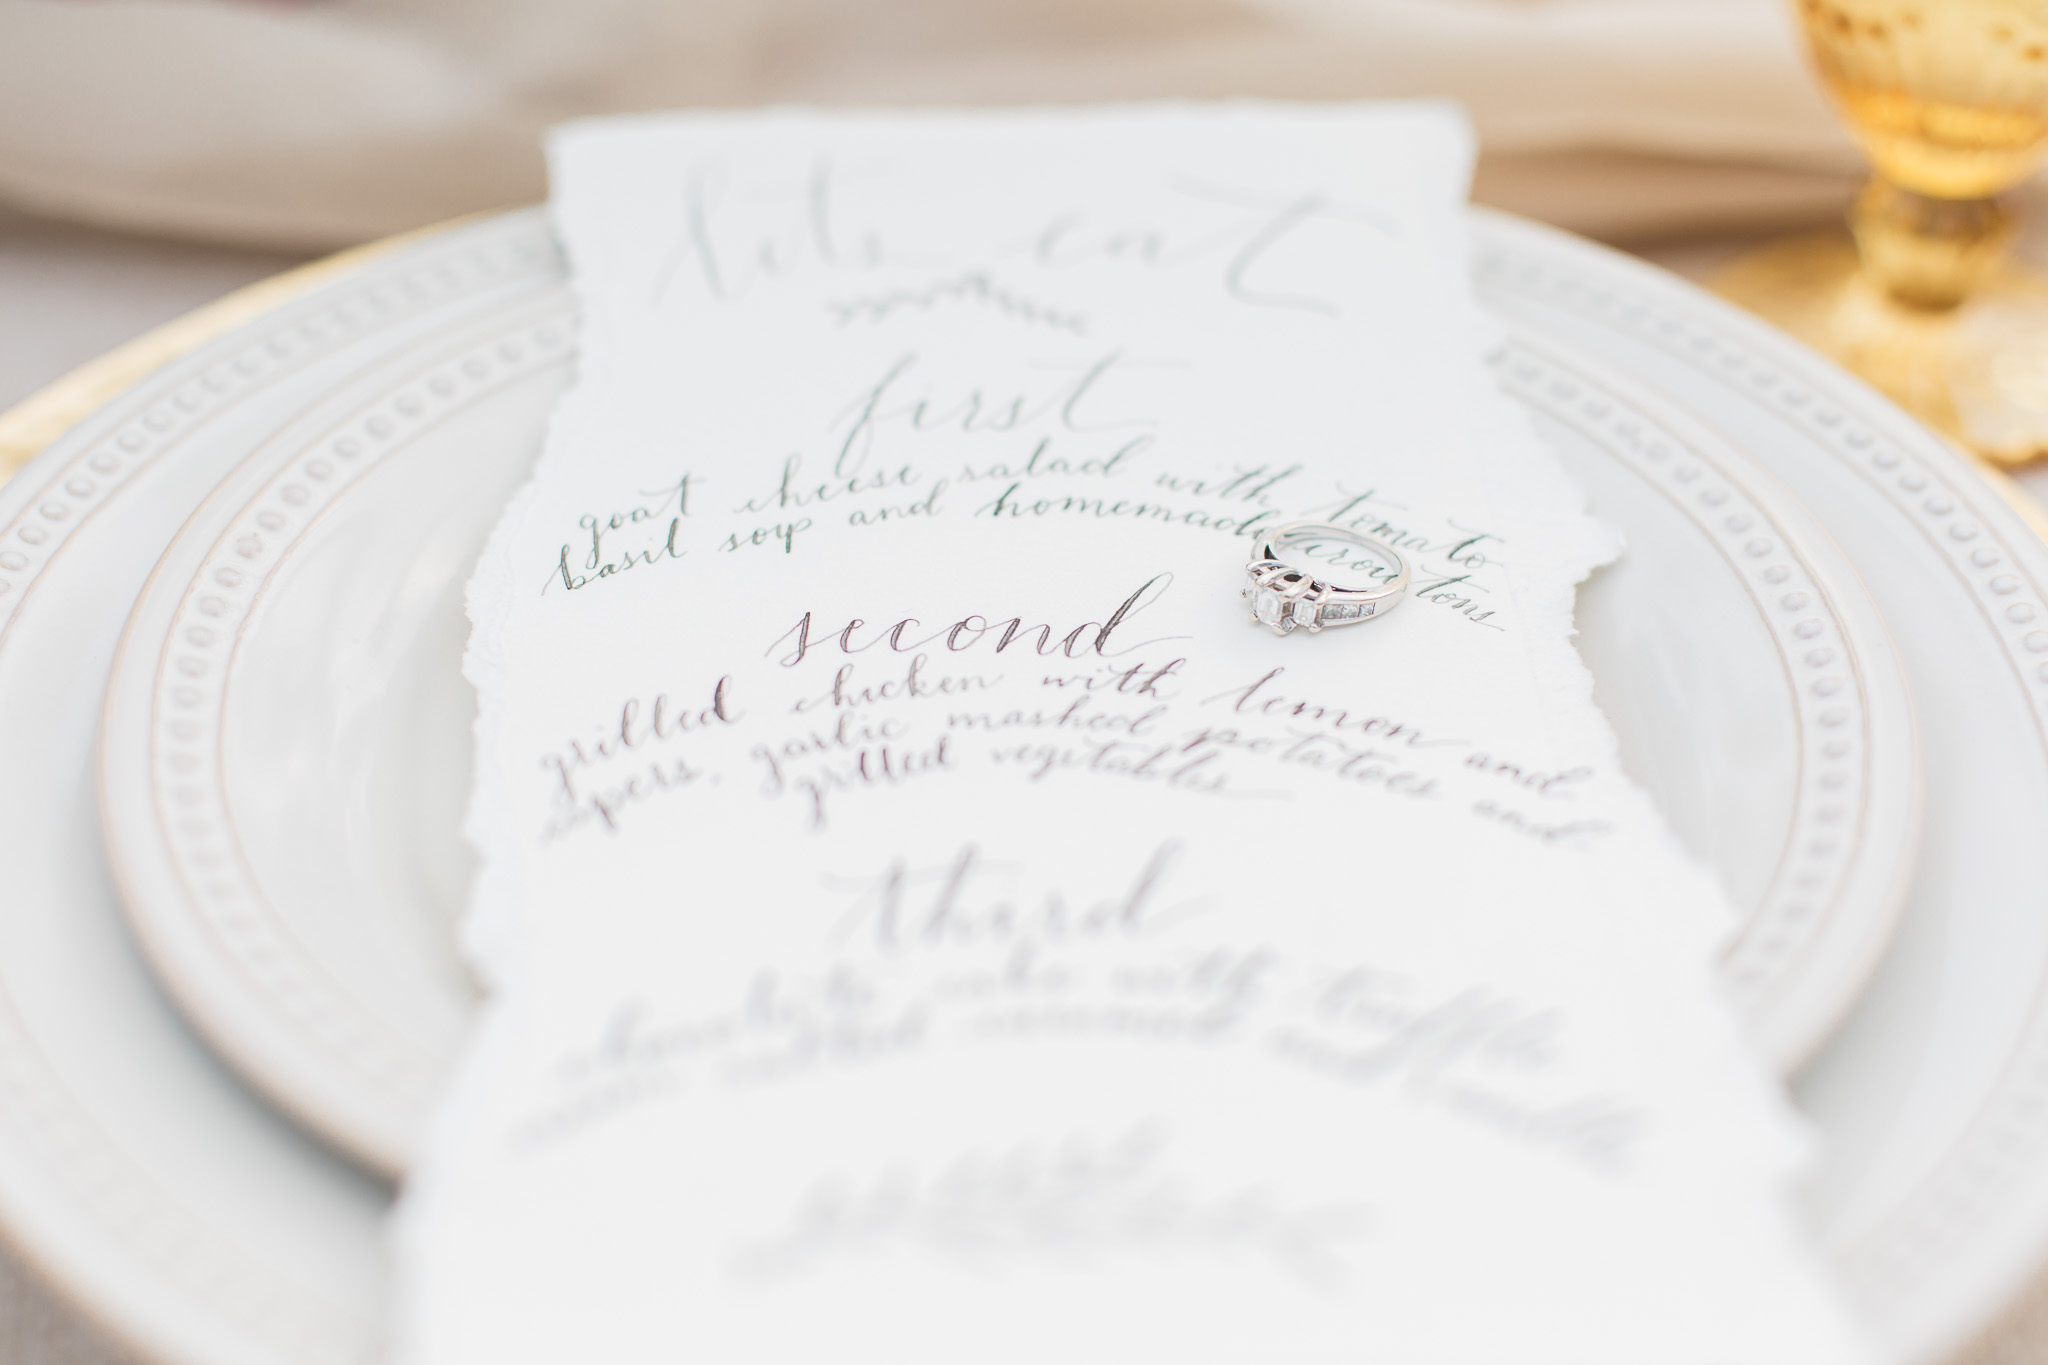 lets eat
first
goat cheese salad with tomato
basil soup and homemade croutons
second
grilled chicken with lemon and
capers, garlic mashed potatoes and
grilled vegetables
third
chocolate cake with truffle